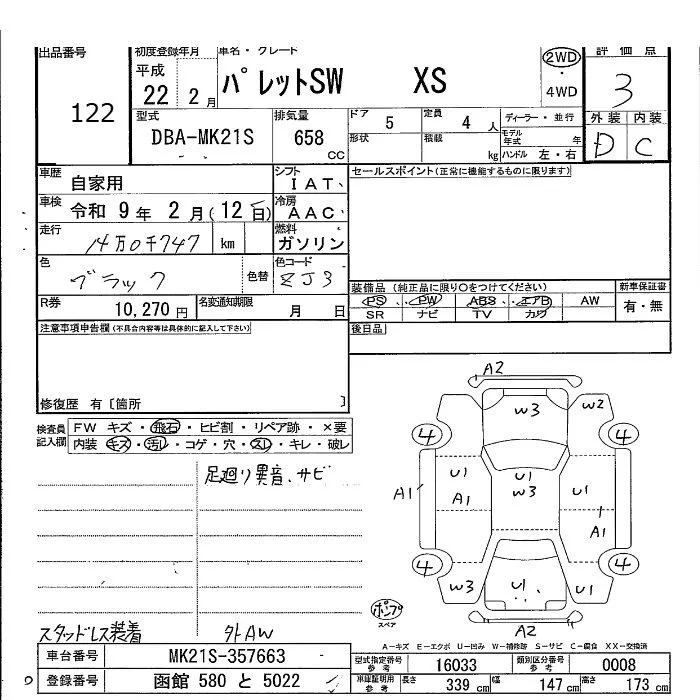 出品番号
122
初度登録年月
平成
22 2 月
車名・グレード
パレットSW XS
2WD
・
4WD
評価点
3
型式
DBA-MK21S
排気量
658
CC
ドア
5
定員
4 人
形状
積載
kg
ディーラー・並行
モデル年式 年
ハンドル 左・右
外装 内装
D C
車歴
自家用
シフト
IAT
セールスポイント(正常に機能するものに限ります)
車検
令和 9 年 2 月(12 日)
冷房
AAC
走行
14万0千747 km
燃料
ガソリン
色
ブラック
色替
色コード
ZJ3
装備品 (純正品に限り○をつけてください)
PS ・ PW ・ ABS ・ エアB AW
SR ナビ TV カワ
新車保証書
有・無
R券
10,270 円
名変通知期限
月 日
後日品
注意事項申告欄(不具合内容等は具体的に記入して下さい)
修復歴 有〔箇所 〕
検査員記入欄
FW キズ・飛石・ヒビ割・リペア跡・×要
内装 キズ・汚レ・コゲ・穴・スレ・キレ・破レ
足廻り異音、サビ
スタッドレス装着
外AW
A2
W3
W2
4
4
U1
U1
W3
U1
A1
A1
U1
A1
4
4
W3
U1
U1
A2
ポンプ
スペア
A－キズ E－エクボ U－凹み W－補修跡 S－サビ C－腐食 XX－交換済
車台番号
MK21S-357663
登録番号
函館 580 と 5022
型式指定番号
参考
16033
類別区分番号
参考
0008
車庫証明用
参考
長さ
339 cm
幅
147 cm
高さ
173 cm